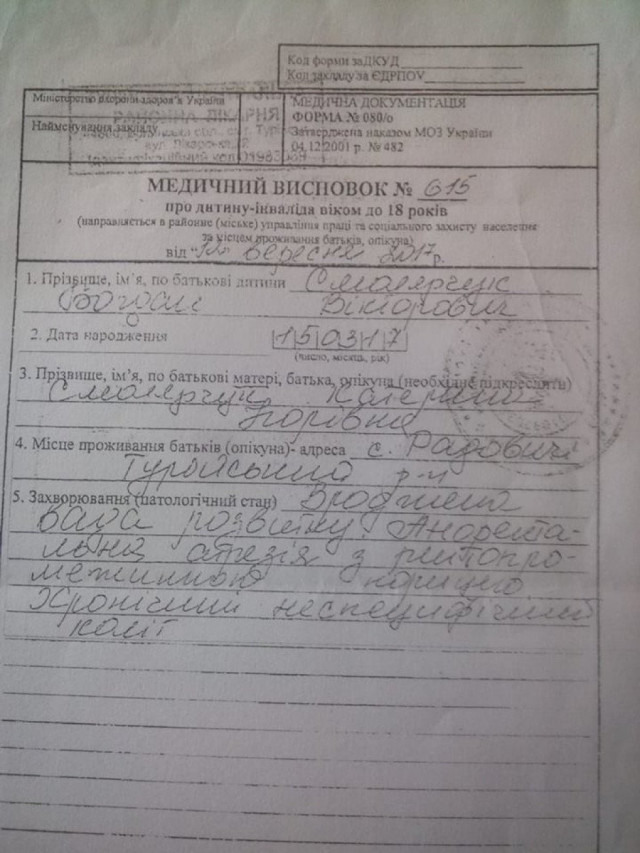 Код форми заДКУД
Код закладу за ЄДРПОУ
Міністерство охорони здоров'я України
Найменування закладу
РАЙОННА ЛІКАРНЯ
МЕДИЧНА ДОКУМЕНТАЦІЯ
ФОРМА № 080/о
Затверджена наказом МОЗ України
04.12.2001 р. № 482
МЕДИЧНИЙ ВИСНОВОК № 615
про дитину-інваліда віком до 18 років
(направляється в районне (міське) управління праці та соціального захисту населення
за місцем проживання батьків, опікуна)
від "12" вересня 2017р.
1. Прізвище, ім'я, по батькові дитини Смолярчук
Богдан Вікторович
2. Дата народження 150317
(число, місяць, рік)
3. Прізвище, ім'я, по батькові матері, батька, опікуна (необхідне підкреслити)
Смолярчук Катерина
Ігорівна
4. Місце проживання батьків (опікуна)- адреса с. Радовичі
Турійський р-н
5. Захворювання (патологічний стан) Вроджена
вада розвитку. Аноректа-
льна атезія з ректопро-
межинною норицею.
Хронічний неспецифічний
коліт